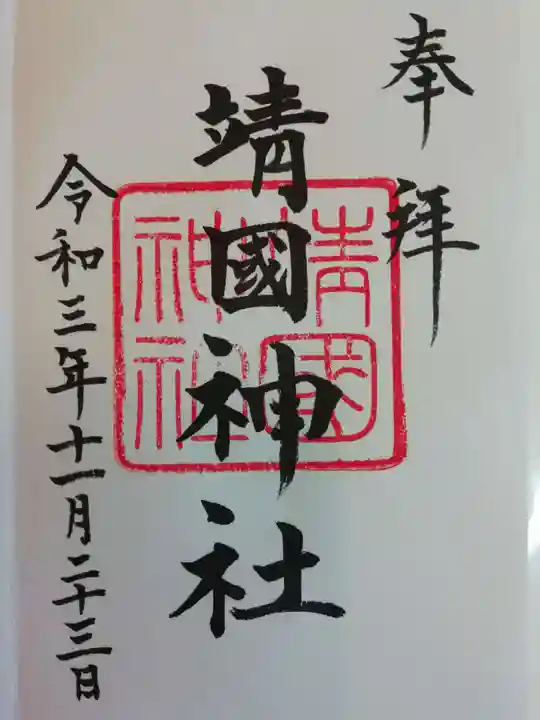 奉拝
靖國神社
靖國
神社
令和三年十一月二十三日